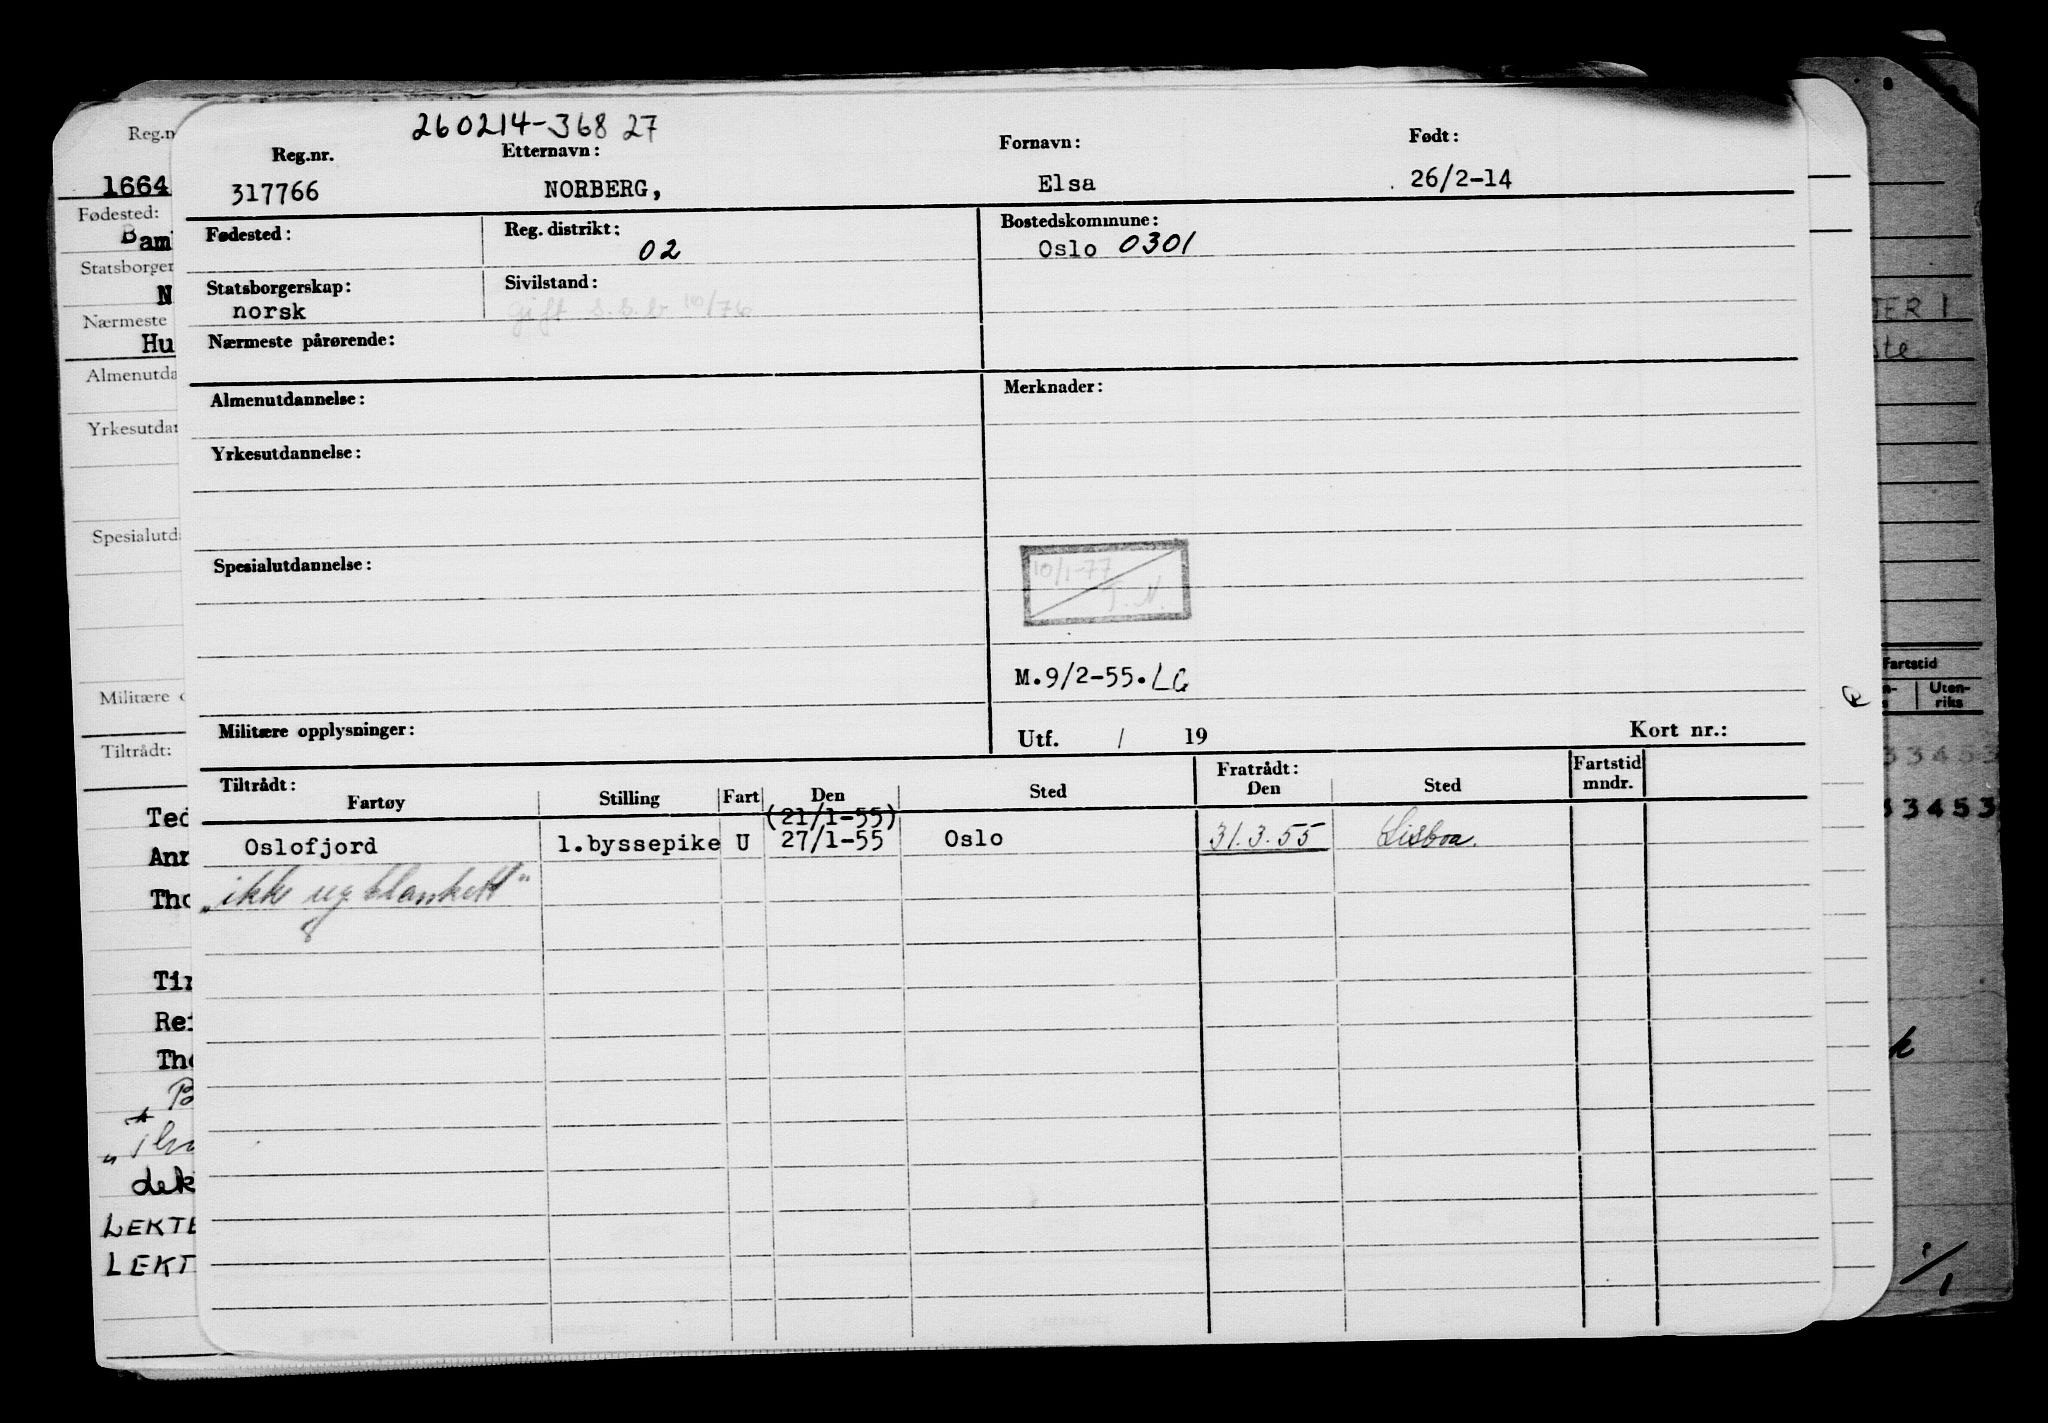 260214-368 27
Reg.nr. Etternavn: Fornavn: Født:
317766 NORBERG, Elsa 26/2-14
Fødested: Reg. distrikt: 02 Bostedskommune: Oslo 0301
Statsborgerskap: norsk Sivilstand: gift s.s.b 10/76
Nærmeste pårørende:
Almenutdannelse: Merknader:
Yrkesutdannelse:
Spesialutdannelse: 10/1-77
M.9/2-55. LG
Militære opplysninger: Utf. / 19 Kort nr.:
Tiltrådt: Fratrådt: Fartstid
Fartøy Stilling Fart Den Sted Den Sted mndr.
(21/1-55)
Oslofjord 1.byssepike U 27/1-55 Oslo 31.3.55 Lisboa.
"ikke ug blankett"
Reg.n
1664
Fødested:
Bam
Statsborger
N
Nærmeste
Hu
Almenutda
Yrkesutdan
Spesialutd
Militære
Tiltrådt:
Ted
Ann
Tho
Tir
Rei
Tho
dek
LEKTE
LEKT
TER 1
ste
Fartstid
Uten-
riks
33453
33453
k